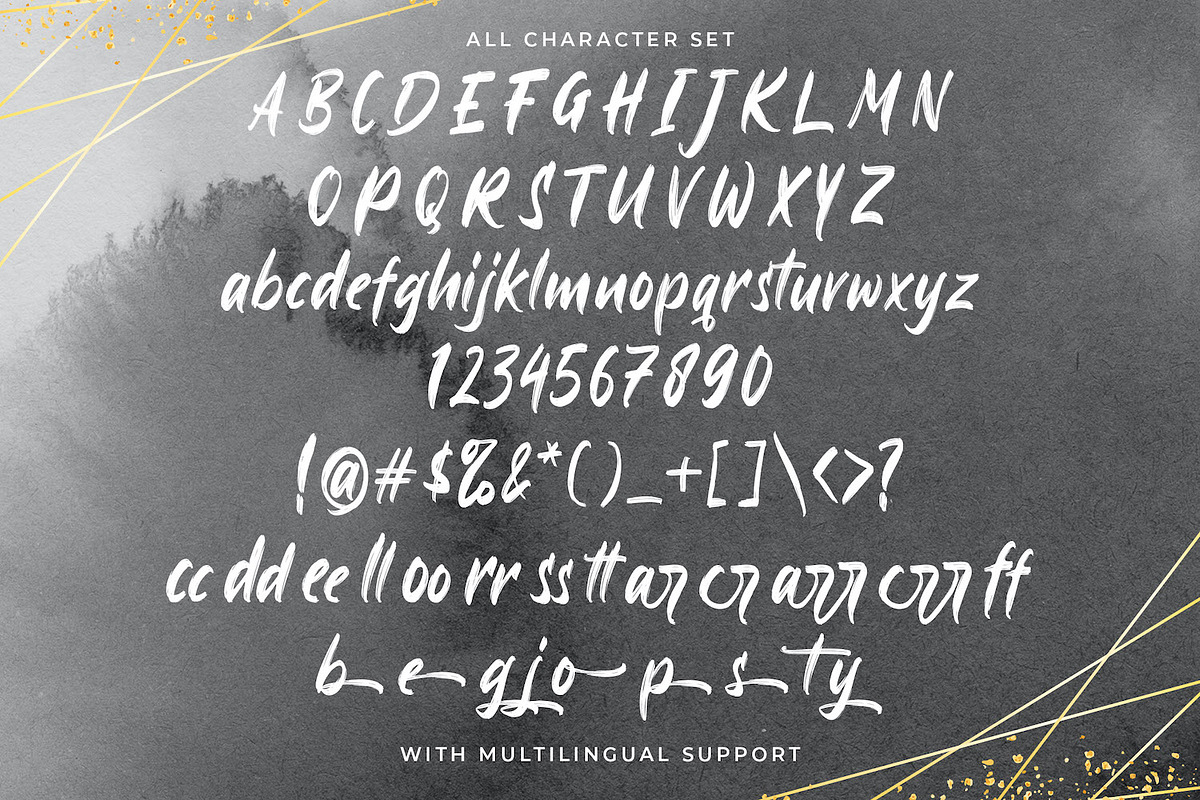 ALL CHARACTER SET
A B C D E F G H I J K L M N
O P Q R S T U V W X Y Z
abcdefghijklmnopqrstuvwxyz
1234567890
!@#$%&*()_+[]\<>?
cc dd ee ll oo rr ss tt ar cr arr crr ff
b e g j o p s t y
WITH MULTILINGUAL SUPPORT